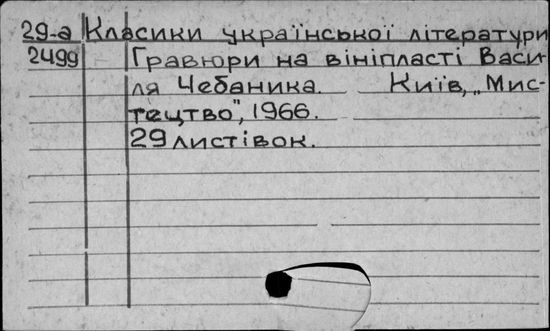 29-а Класики української літератури
2499 Гравюри на вініпласті Васи-
ля Чебаника. Київ, „Мис-
тецтво", 1966.
29 листівок.